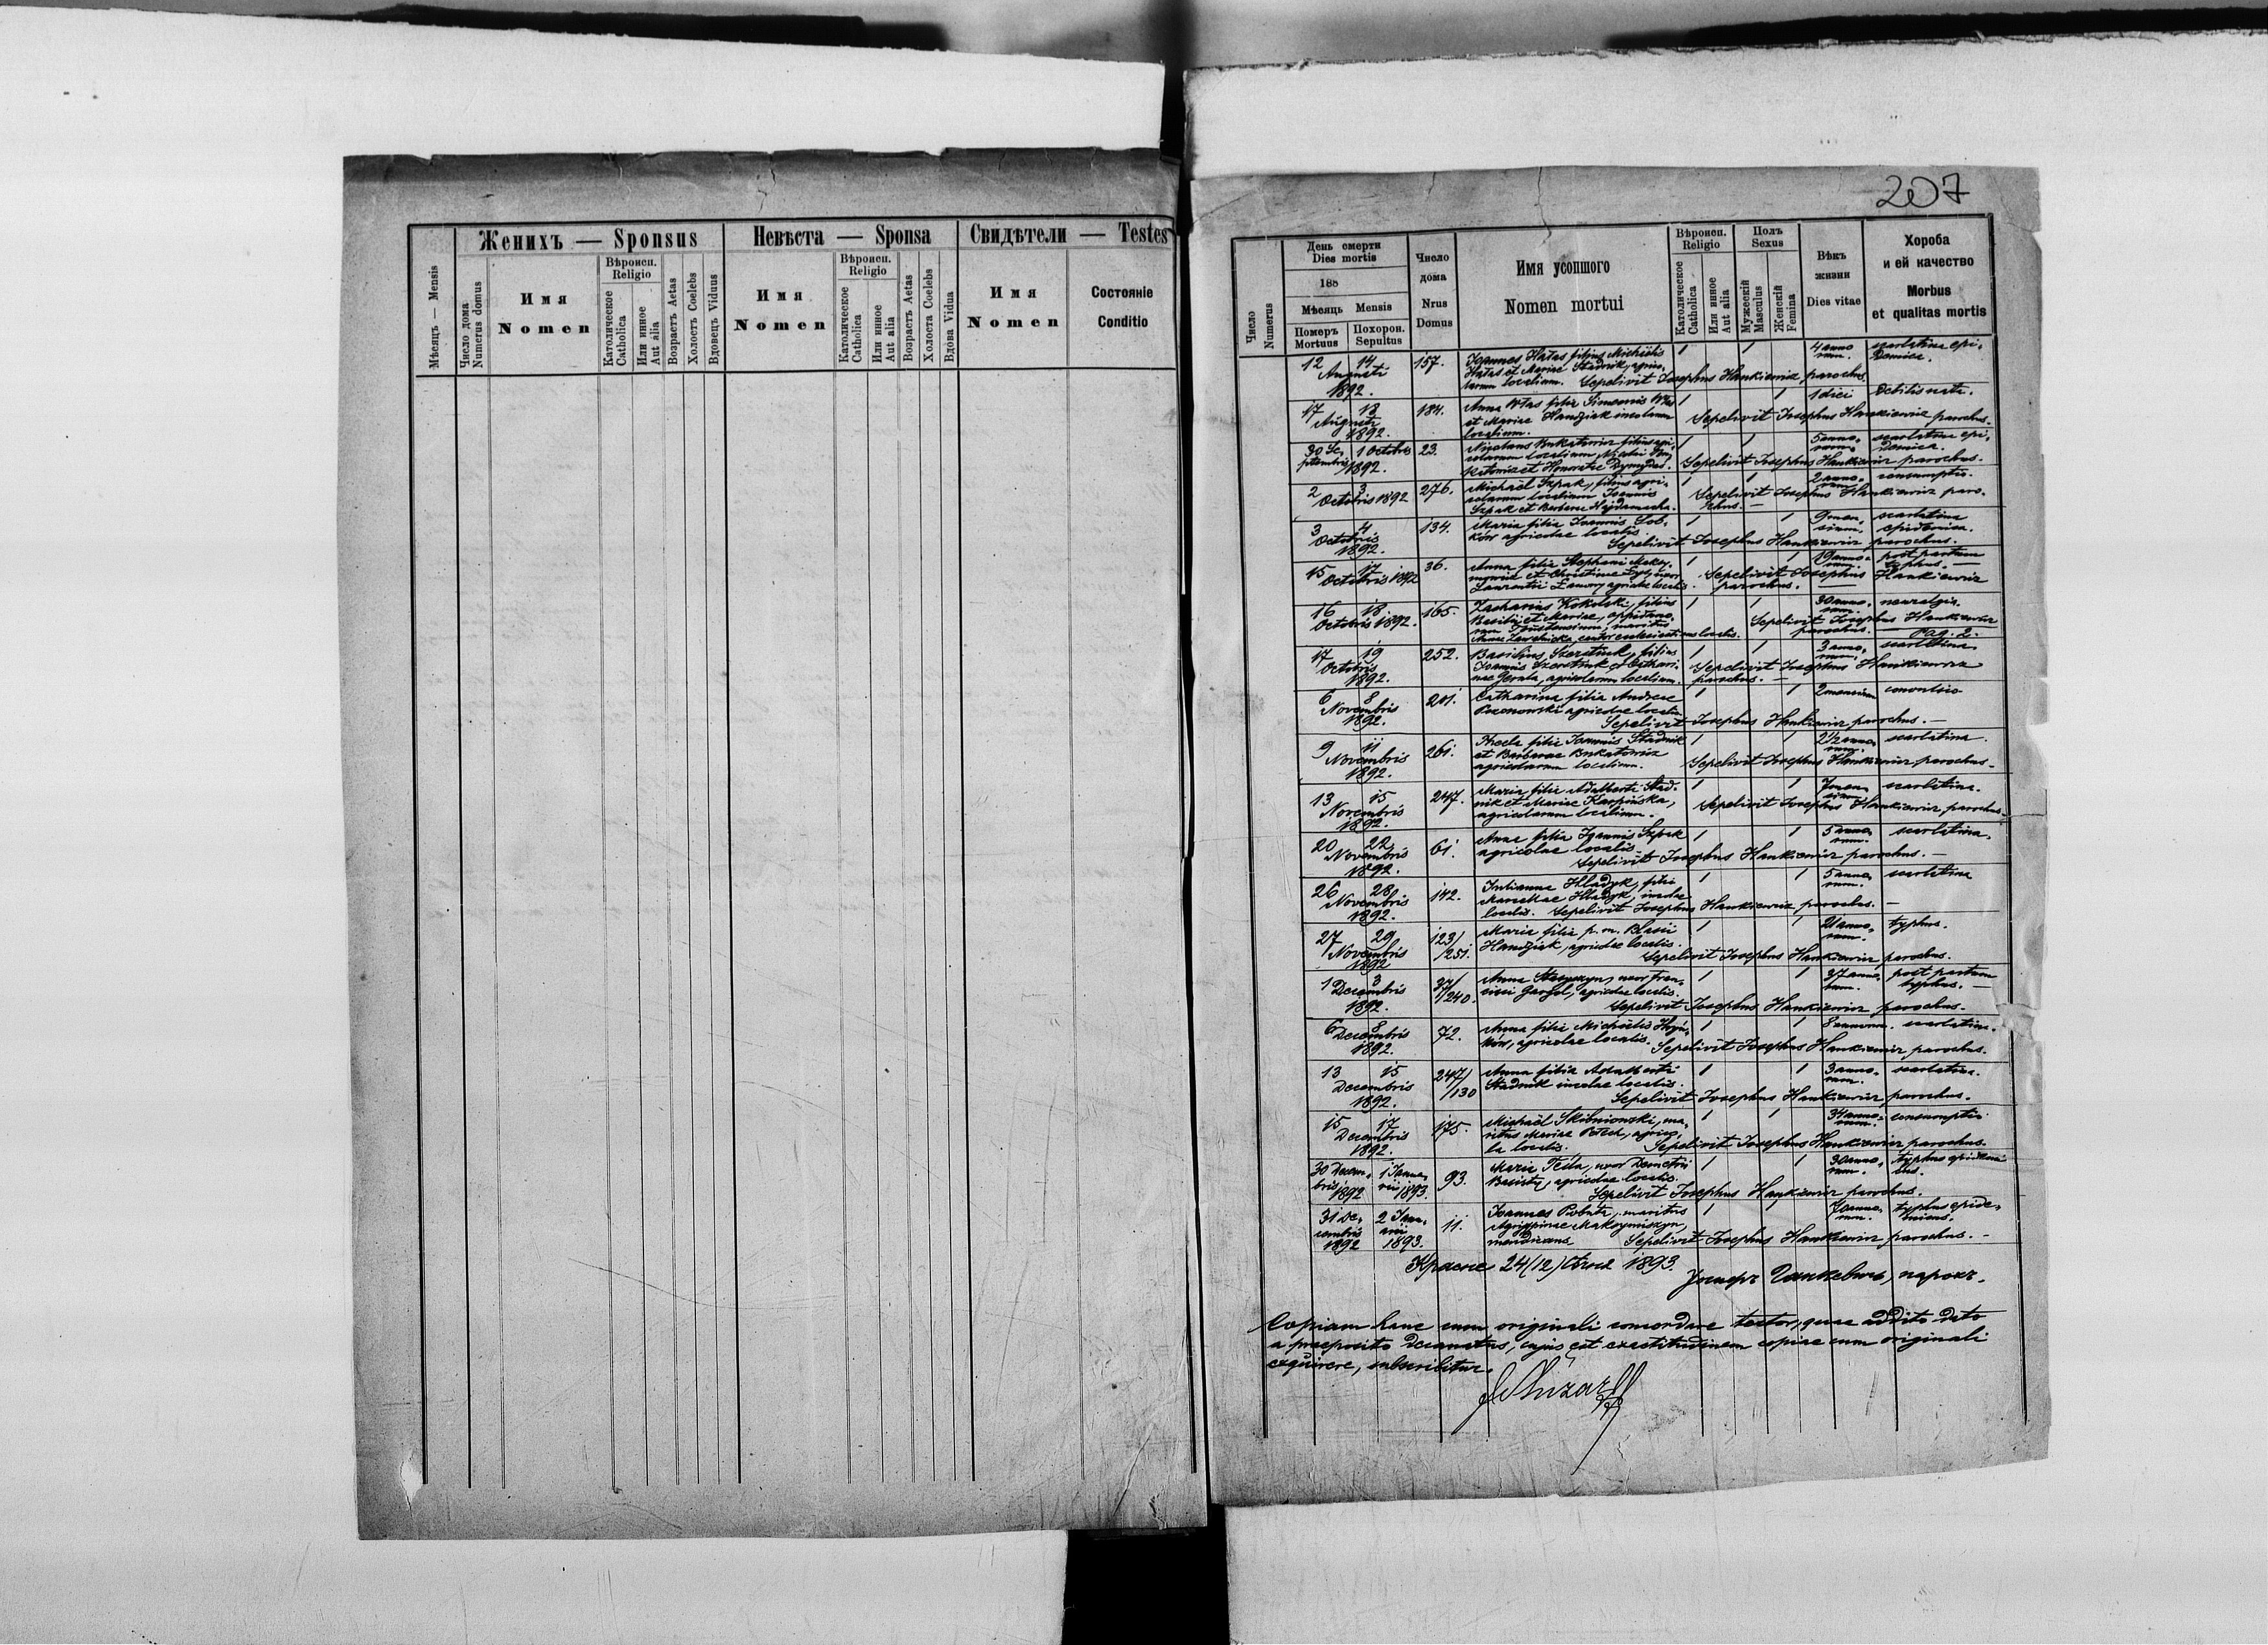 Женихъ — Sponsus
Невѣста — Sponsa
Свидѣтели — Testes
Мѣсяцъ — Mensis
Число дома
Numerus domus
Имя
Nomen
Вѣроисп.
Religio
Католическое
Catholica
Или инное
Aut alia
Возрастъ Aetas
Холостъ Coelebs
Вдовецъ Viduus
Имя
Nomen
Вѣроисп.
Religio
Католическое
Catholica
Или инное
Aut alia
Возрастъ Aetas
Холоста Coelebs
Вдова Vidua
Имя
Nomen
Состояніе
Conditio
207
Число
Numerus
День смерти
Dies mortis
188
Мѣсяць Mensis
Померъ
Mortuus
Похорон.
Sepultus
Число
дома
Nrus
Domus
Имя усопшого
Nomen mortui
Вѣроисп.
Religio
Католическое
Catholica
Или инное
Aut alia
Полъ
Sexus
Мужескій
Masculus
Женскій
Femina
Вѣкъ
жизни
Dies vitae
Хороба
и ей качество
Morbus
et qualitas mortis
12 14 157. Joannes Hatas filius Michaëlis 1 1 4 anno scarlatina epi-
Augusti Hatas et Mariae Stadnik, agrico- rum. demica.
1892. larum localium. Sepelivit Josephus Hankiewicz parochus.
17 18 184. Anna filia Simeonis 1 1 1 diei debilis nata.
Augusti et Mariae Handziak incolarum Sepelivit Josephus Hankiewicz parochus.
1892. localium.
30 Se- 1 Octobris 23. Nicolaus Bukatowicz filius agri- 1 1 5 anno- scarlatina epi-
ptembris 1892. colarum localium Nicolai Bu- rum. demica.
katowicz et Honoratae Sepelivit Josephus Hankiewicz parochus.
2 3 276. Michaël Szpak, filius agri- 1 1 2 anno- consumptio.
Octobris 1892 colarum localium Joannis rum. Sepelivit Josephus Hankiewicz paro-
Szpak et Barbarae Hajdamacha. chus. —
3 4 134. Maria filia Joannis Sob- 1 1 9 men- scarlatina
Octobris ków agricolae localis. sium. epidemica.
1892. Sepelivit Josephus Hankiewicz parochus.
15 17 36. Anna filia Stephani 1 1 19 anno- post partum
Octobris 1892 et Christinae uxor rum. typhus. —
Laurentii agricolae localis. Sepelivit Josephus Hankiewicz
parochus. —
16 18 165. Zacharias Kokolski, filius 1 1 30 anno- neuralgia.
Octobris 1892. Basilii et Mariae, oppidano- rum.
rum maritus Sepelivit Josephus Hankiewicz
Annae localis. parochus. Pag. 2.
17 19 252. Basilius Szeretiuk, filius 1 1 3 anno- scarlatina
Octobris Joannis Szeretiuk et Cathari- rum.
1892. nae agricolarum localium. Sepelivit Josephus Hankiewicz
parochus. —
6 8 201. Catharina filia Andreae 1 1 2 mensium convulsio
Novembris agricolae localis
1892. Sepelivit Josephus Hankiewicz parochus. —
9 11 261. Thecla filia Joannis Stadnik 1 1 2 1/2 anno- scarlatina.
Novembris et Barbarae Bukatowicz rum.
1892. agricolarum localium. Sepelivit Josephus Hankiewicz parochus. —
13 15 247. Maria filia Adalberti Stad- 1 1 7 men- scarlatina.
Novembris nik et Mariae Karpińska, sium.
1892. agricolarum localium. Sepelivit Josephus Hankiewicz parochus.
20 22 61. Anna filia Joannis Szpak 1 1 5 anno- scarlatina.
Novembris agricolae localis rum.
1892. Sepelivit Josephus Hankiewicz parochus. —
26 28 142. Julianna Hladyk, filia 1 1 5 anno- scarlatina
Novembris Hladyk, incolae rum.
1892. localis. Sepelivit Josephus Hankiewicz parochus. —
27 29 123/ Maria filia p. m. Blasii 1 1 21 anno- typhus.
Novembris /251. Handziak, agricolae localis. rum.
1892 Sepelivit Josephus Hankiewicz parochus.
1 3 37/ Anna uxor Fran- 1 1 37 anno- post partum
Decembris /240. cisci Gargol, agricolae localis. rum. typhus. —
1892. Sepelivit Josephus Hankiewicz parochus. —
6 8 72. Anna filia Michaëlis 1 1 8 annorum. scarlatina.
Decembris agricolae localis.
1892. Sepelivit Josephus Hankiewicz parochus.
13 15 247/ Anna filia Adalberti 1 1 3 anno- scarlatina.
Decembris /130 Stadnik incolae localis. rum.
1892. Sepelivit Josephus Hankiewicz parochus.
15 17 175. Michaël Skibniowski, ma- 1 1 34 anno- consumptio
Decembris ritus Mariae agrico- rum.
1892. la localis. Sepelivit Josephus Hankiewicz parochus.
30 Decem- 1 Janua- 93. Maria uxor Demetrii 1 1 30 anno- typhus epidemi-
bris 1892 rii 1893. agricolae localis. rum. cus.
Sepelivit Josephus Hankiewicz parochus.
31 De- 2 Janu- 11. Joannes maritus 1 70 anno- typhus epide-
cembris arii Agrippinae rum. micus.
1892 1893. mendicans Sepelivit Josephus Hankiewicz parochus. —
Красне 24/(12) Січня 1893.
Іосифъ Ганкевичъ, парохъ.
Copiam hanc cum originali concordare testor, quae addito dato
a praeposito decanatus, cujus est exactitudinem copiae cum originali
exquirere, subscribitur.